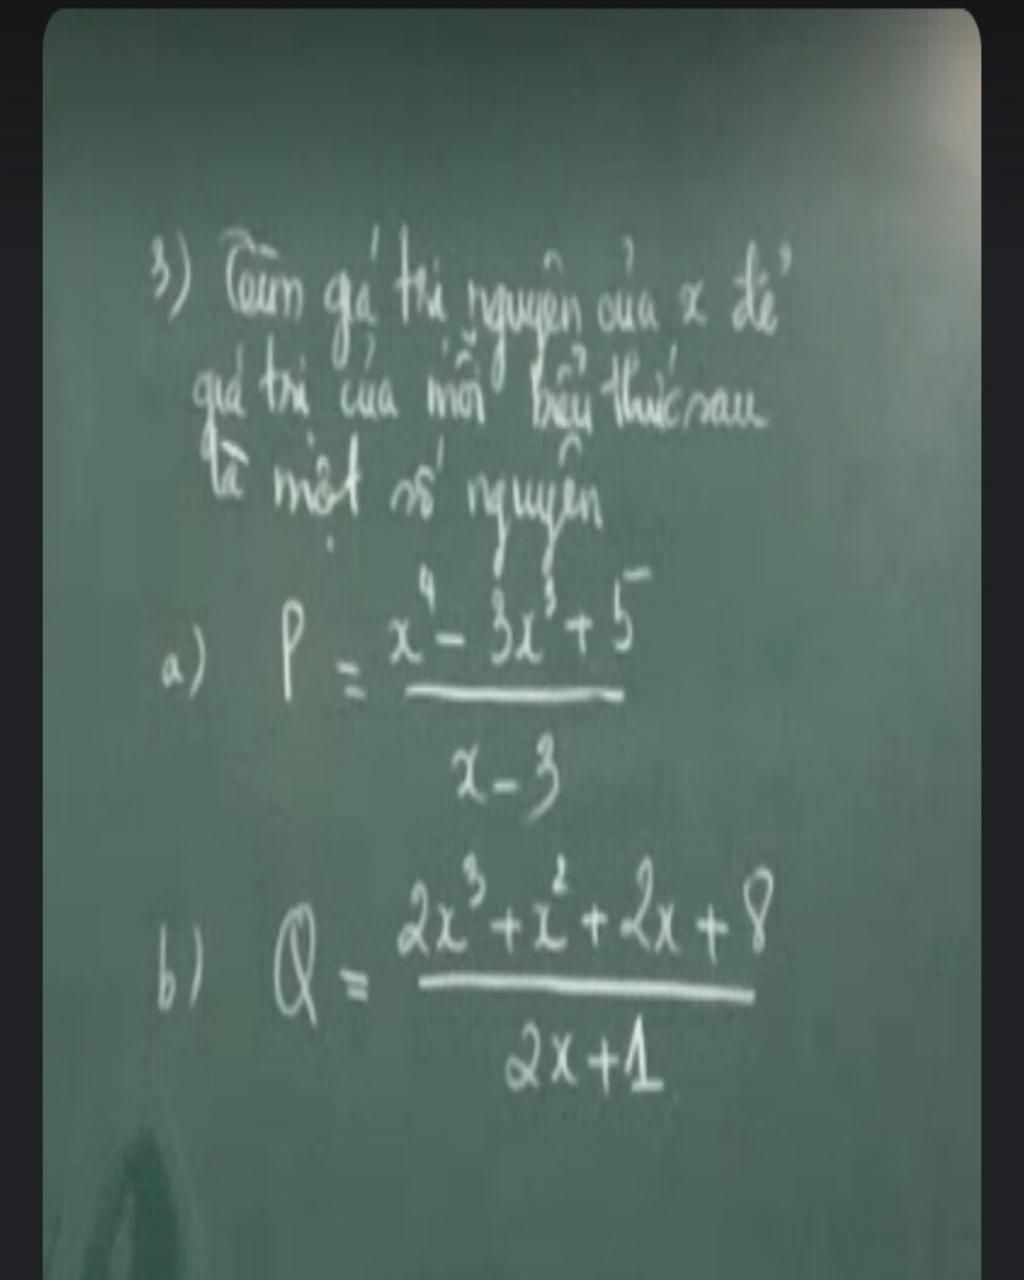 3) Tìm giá trị nguyên của x để
giá trị của mỗi biểu thức sau
là một số nguyên
a) P = \frac{x^4 - 3x^3 + 5}{x - 3}
b) Q = \frac{2x^3 + x^2 + 2x + 8}{2x + 1}